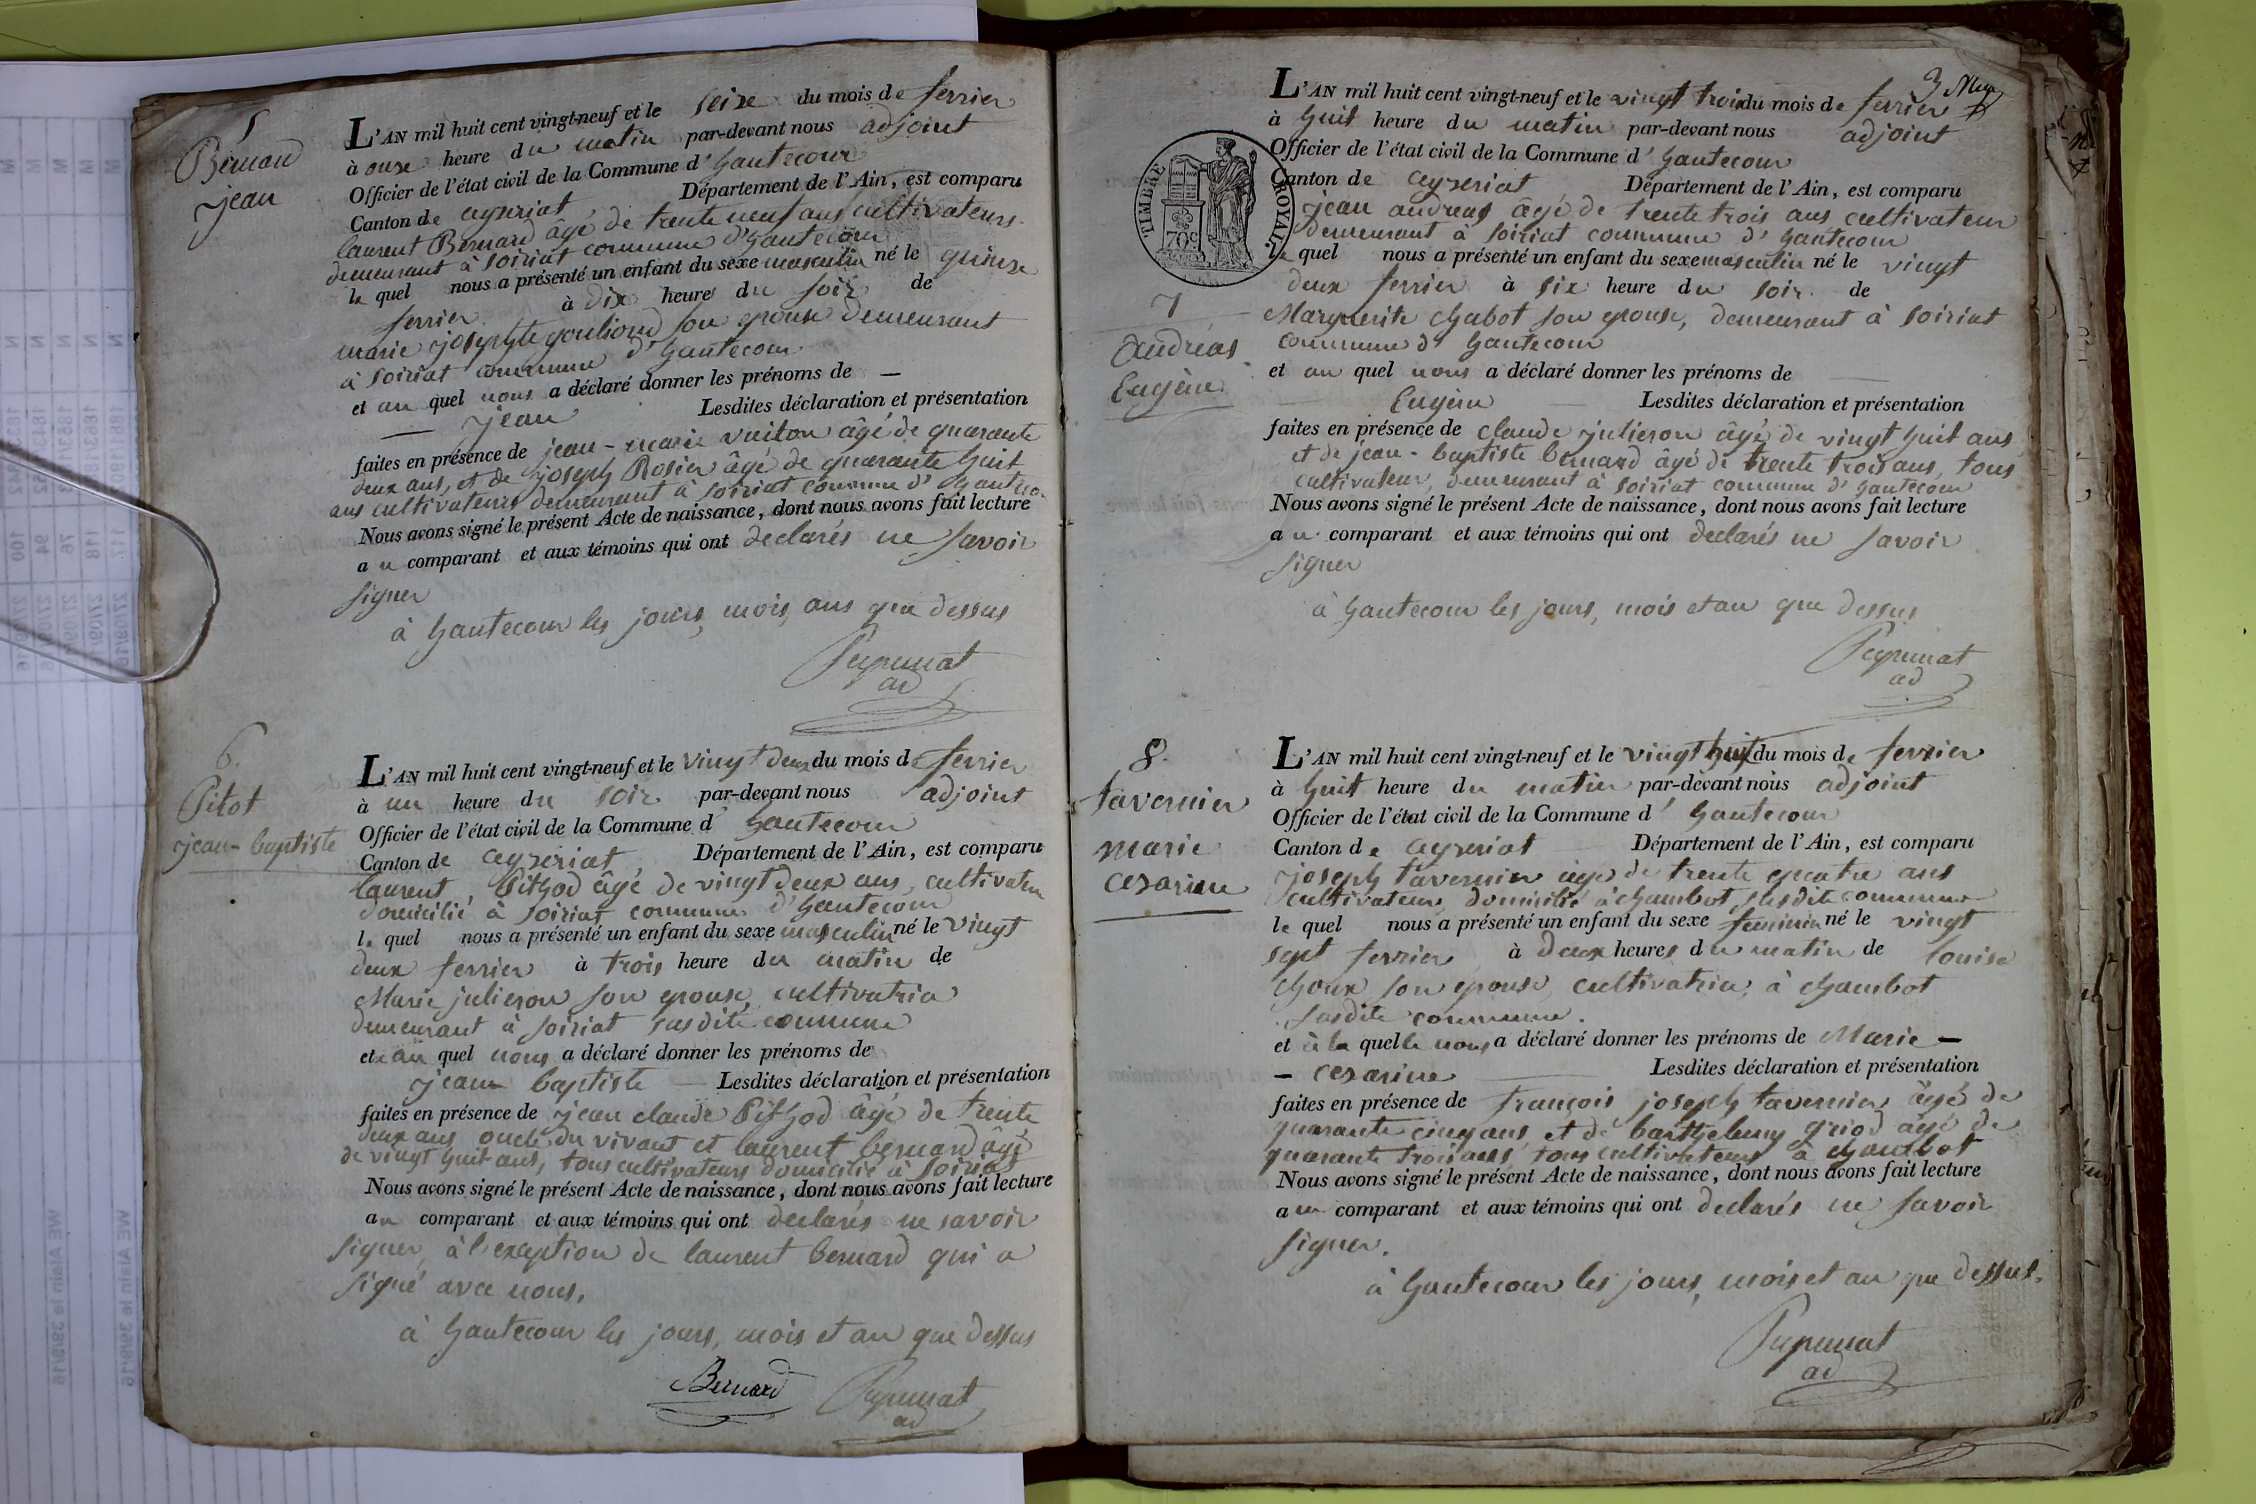 5
Bernard
jean
L'AN mil huit cent vingt-neuf et le seize du mois de fevrier
à onze heure du matin par-devant nous adjoint
Officier de l'état civil de la Commune d'hautecour
Canton de ceyzeriat Département de l'Ain, est comparu
laurent Bernard âgé de trente neuf ans cultivateur
demeurant à soiriat commune d'hautecour
le quel nous a présenté un enfant du sexe masculin né le quinze
fevrier à dix heure du soir de
marie josephte goubioud son epouse demeurant
à soiriat commune d'hautecour
et au quel nous a déclaré donner les prénoms de —
— jean Lesdites déclaration et présentation
faites en présence de jean-marie vuiton âgé de quarante
deux ans, et de joseph Rosier âgé de quarante huit
ans cultivateurs demeurant à soiriat commune d'hauteco.
Nous avons signé le présent Acte de naissance, dont nous avons fait lecture
au comparant et aux témoins qui ont declarés ne savoir
signer
à hautecour les jours, mois, ans que dessus
ad
6.
Pitot
jean-baptiste
L'AN mil huit cent vingt-neuf et le vingt deux du mois de fevrier
à un heure du soir par-devant nous adjoint
Officier de l'état civil de la Commune d' hautecour
Canton de ceyzeriat Département de l'Ain, est comparu
laurent, Pithod âgé de vingt deux ans, cultivateur
domicilié à soiriat commune d'hautecour
le quel nous a présenté un enfant du sexe masculin né le vingt
deux fevrier à trois heure du matin de
Marie julieron son epouse, cultivatrice
demeurant à soiriat susdite commune
et au quel nous a déclaré donner les prénoms de
jean baptiste — Lesdites déclaration et présentation
faites en présence de jean claude Pithod âgé de trente
deux ans oncle du vivant et laurent bernard âgé
de vingt huit ans, tous cultivateurs domicilié à soiriat
Nous avons signé le présent Acte de naissance, dont nous avons fait lecture
au comparant et aux témoins qui ont declarés ne savoir
signer, à l'exeption de laurent bernard qui a
signé avec nous.
à hautecour les jours, mois et an que dessus
Bernard
ad
3
TIMBRE ROYAL.
70c
7
Andréas
Eugène
L'AN mil huit cent vingt-neuf et le vingt trois du mois de fevrier
à huit heure du matin par-devant nous adjoint
Officier de l'état civil de la Commune d' hautecour
Canton de ceyzeriat Département de l'Ain, est comparu
jean andreas âgé de trente trois ans cultivateur
demeurant à soiriat commune d'hautecour
le quel nous a présenté un enfant du sexe masculin né le vingt
deux fevrier à six heure du soir de
Marguerite chabot son epouse, demeurant à soiriat
commune d'hautecour
et au quel nous a déclaré donner les prénoms de
Eugène Lesdites déclaration et présentation
faites en présence de claude julieron âgé de vingt huit ans
et de jean-baptiste bernard âgé de trente trois ans, tous
cultivateur, demeurant à soiriat commune d'hautecour
Nous avons signé le présent Acte de naissance, dont nous avons fait lecture
au comparant et aux témoins qui ont declarés ne savoir
signer
à hautecour les jours, mois et an que dessus
ad
8.
tavernier
marie
cezarine
L'AN mil huit cent vingt-neuf et le vingt huit du mois de fevrier
à huit heure du matin par-devant nous adjoint
Officier de l'état civil de la Commune d' hautecour
Canton de ceyzeriat Département de l'Ain, est comparu
joseph tavernier âgé de trente quatre ans
cultivateur domicilié à chambot, susdite commune
le quel nous a présenté un enfant du sexe feminin né le vingt
sept fevrier à deux heures du matin de louise
choux son epouse cultivatrice, à chambot
susdite commune.
et à la quelle nous a déclaré donner les prénoms de Marie —
— cezarine — Lesdites déclaration et présentation
faites en présence de françois joseph tavernier âgé de
quarante cinq ans et de barthelemy griod âgé de
quarante trois ans, tous cultivateurs à chambot
Nous avons signé le présent Acte de naissance, dont nous avons fait lecture
au comparant et aux témoins qui ont declarés ne savoir
signer.
à hautecour les jours, mois et an que dessus.
ad